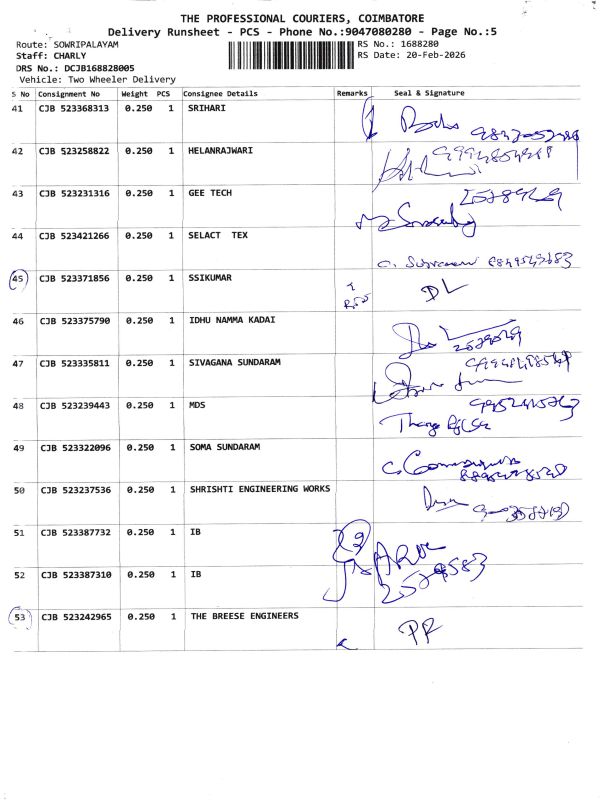 THE PROFESSIONAL COURIERS, COIMBATORE
Delivery Runsheet - PCS - Phone No.:9047080280 - Page No.:5
Route: SOWRIPALAYAM RS No.: 1688280
Staff: CHARLY RS Date: 20-Feb-2026
DRS No.: DCJB168828005
Vehicle: Two Wheeler Delivery
S No Consignment No Weight PCS Consignee Details Remarks Seal & Signature
41 CJB 523368313 0.250 1 SRIHARI
42 CJB 523258822 0.250 1 HELANRAJWARI
43 CJB 523231316 0.250 1 GEE TECH
44 CJB 523421266 0.250 1 SELACT TEX
45 CJB 523371856 0.250 1 SSIKUMAR DL
46 CJB 523375790 0.250 1 IDHU NAMMA KADAI
47 CJB 523335811 0.250 1 SIVAGANA SUNDARAM
48 CJB 523239443 0.250 1 MDS
49 CJB 523322096 0.250 1 SOMA SUNDARAM
50 CJB 523237536 0.250 1 SHRISHTI ENGINEERING WORKS
51 CJB 523387732 0.250 1 IB
52 CJB 523387310 0.250 1 IB
53 CJB 523242965 0.250 1 THE BREESE ENGINEERS PR